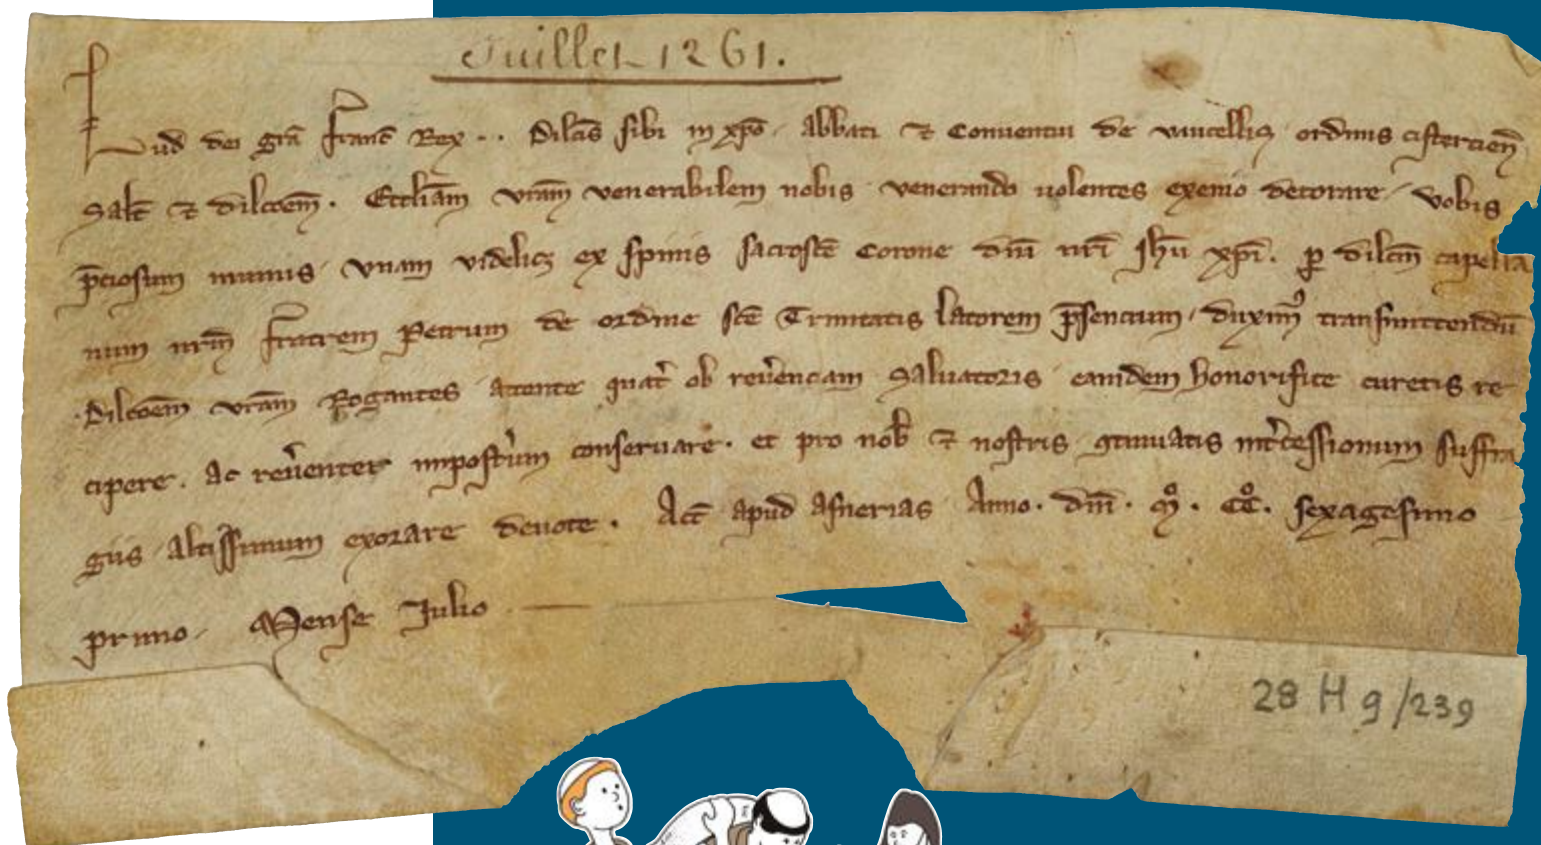 Juillet 1261.
Lud dei grã franc̃ Rex . . Dilc̃is sibi in xp̃o . abbati ⁊ Conuentui de vaucellis ordinis cistercieñ
Salt̃ ⁊ dilc̃oem̃ . Eccl̃iam vr̃am venerabilem nobis venerando uolentes exenio decorare / vobis
p̃ciosum munus / vnam videlicꝫ ex spinis sacrosc̃e Corone dñi nr̃i Jh̃u xp̃i . ꝑ dilc̃m capella
num nr̃m fratrem Petrum de ordine sc̃e Trinitatis latorem p̃sencium / duximꝰ transmittendũ
Dilc̃oem̃ vr̃am Rogantes attente quat̃ ob reũenciam Saluatoris eamdem honorifice curetis re
cipere . ac reũenter impost̃um conseruare . et pro nob̃ ⁊ nostris ꝯtinuatis int̃cessionum suffra
giis altissimum exorare deuote . Act̃ apud asnerias Anno . dñi . mͦ . ccͦ . sexagesimo
primo . Mense Julio
28 H 9/239